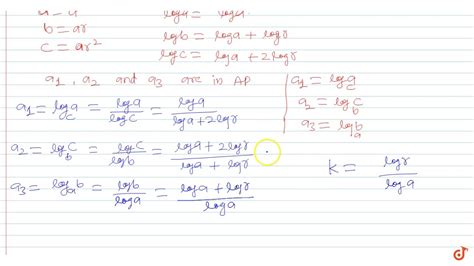 a = a        log a = log a.
b = ar        log b = log a + log r
c = ar²        log c = log a + 2 log r
a₁ , a₂ and a₃ are in AP
a₁ = log_c a = log a / log c = log a / (log a + 2 log r)
a₂ = log_b c = log c / log b = (log a + 2 log r) / (log a + log r)
a₃ = log_a b = log b / log a = (log a + log r) / log a
a₁ = log_c a
a₂ = log_b c
a₃ = log_a b
k = log r / log a